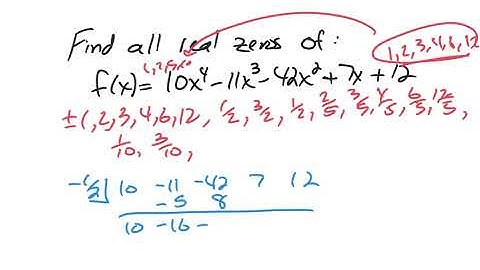 Find all real zeros of:
1,2,3,4,6,12
1,2,5,10
f(x)= 10x⁴-11x³-42x²+7x+12
±(1,2,3,4,6,12, 1/2, 3/2, 1/2, 2/5, 3/5, 4/5, 6/5, 12/5,
1/10, 3/10,
-1/2| 10 -11 -42 7 12
-5 8
10 -16 -